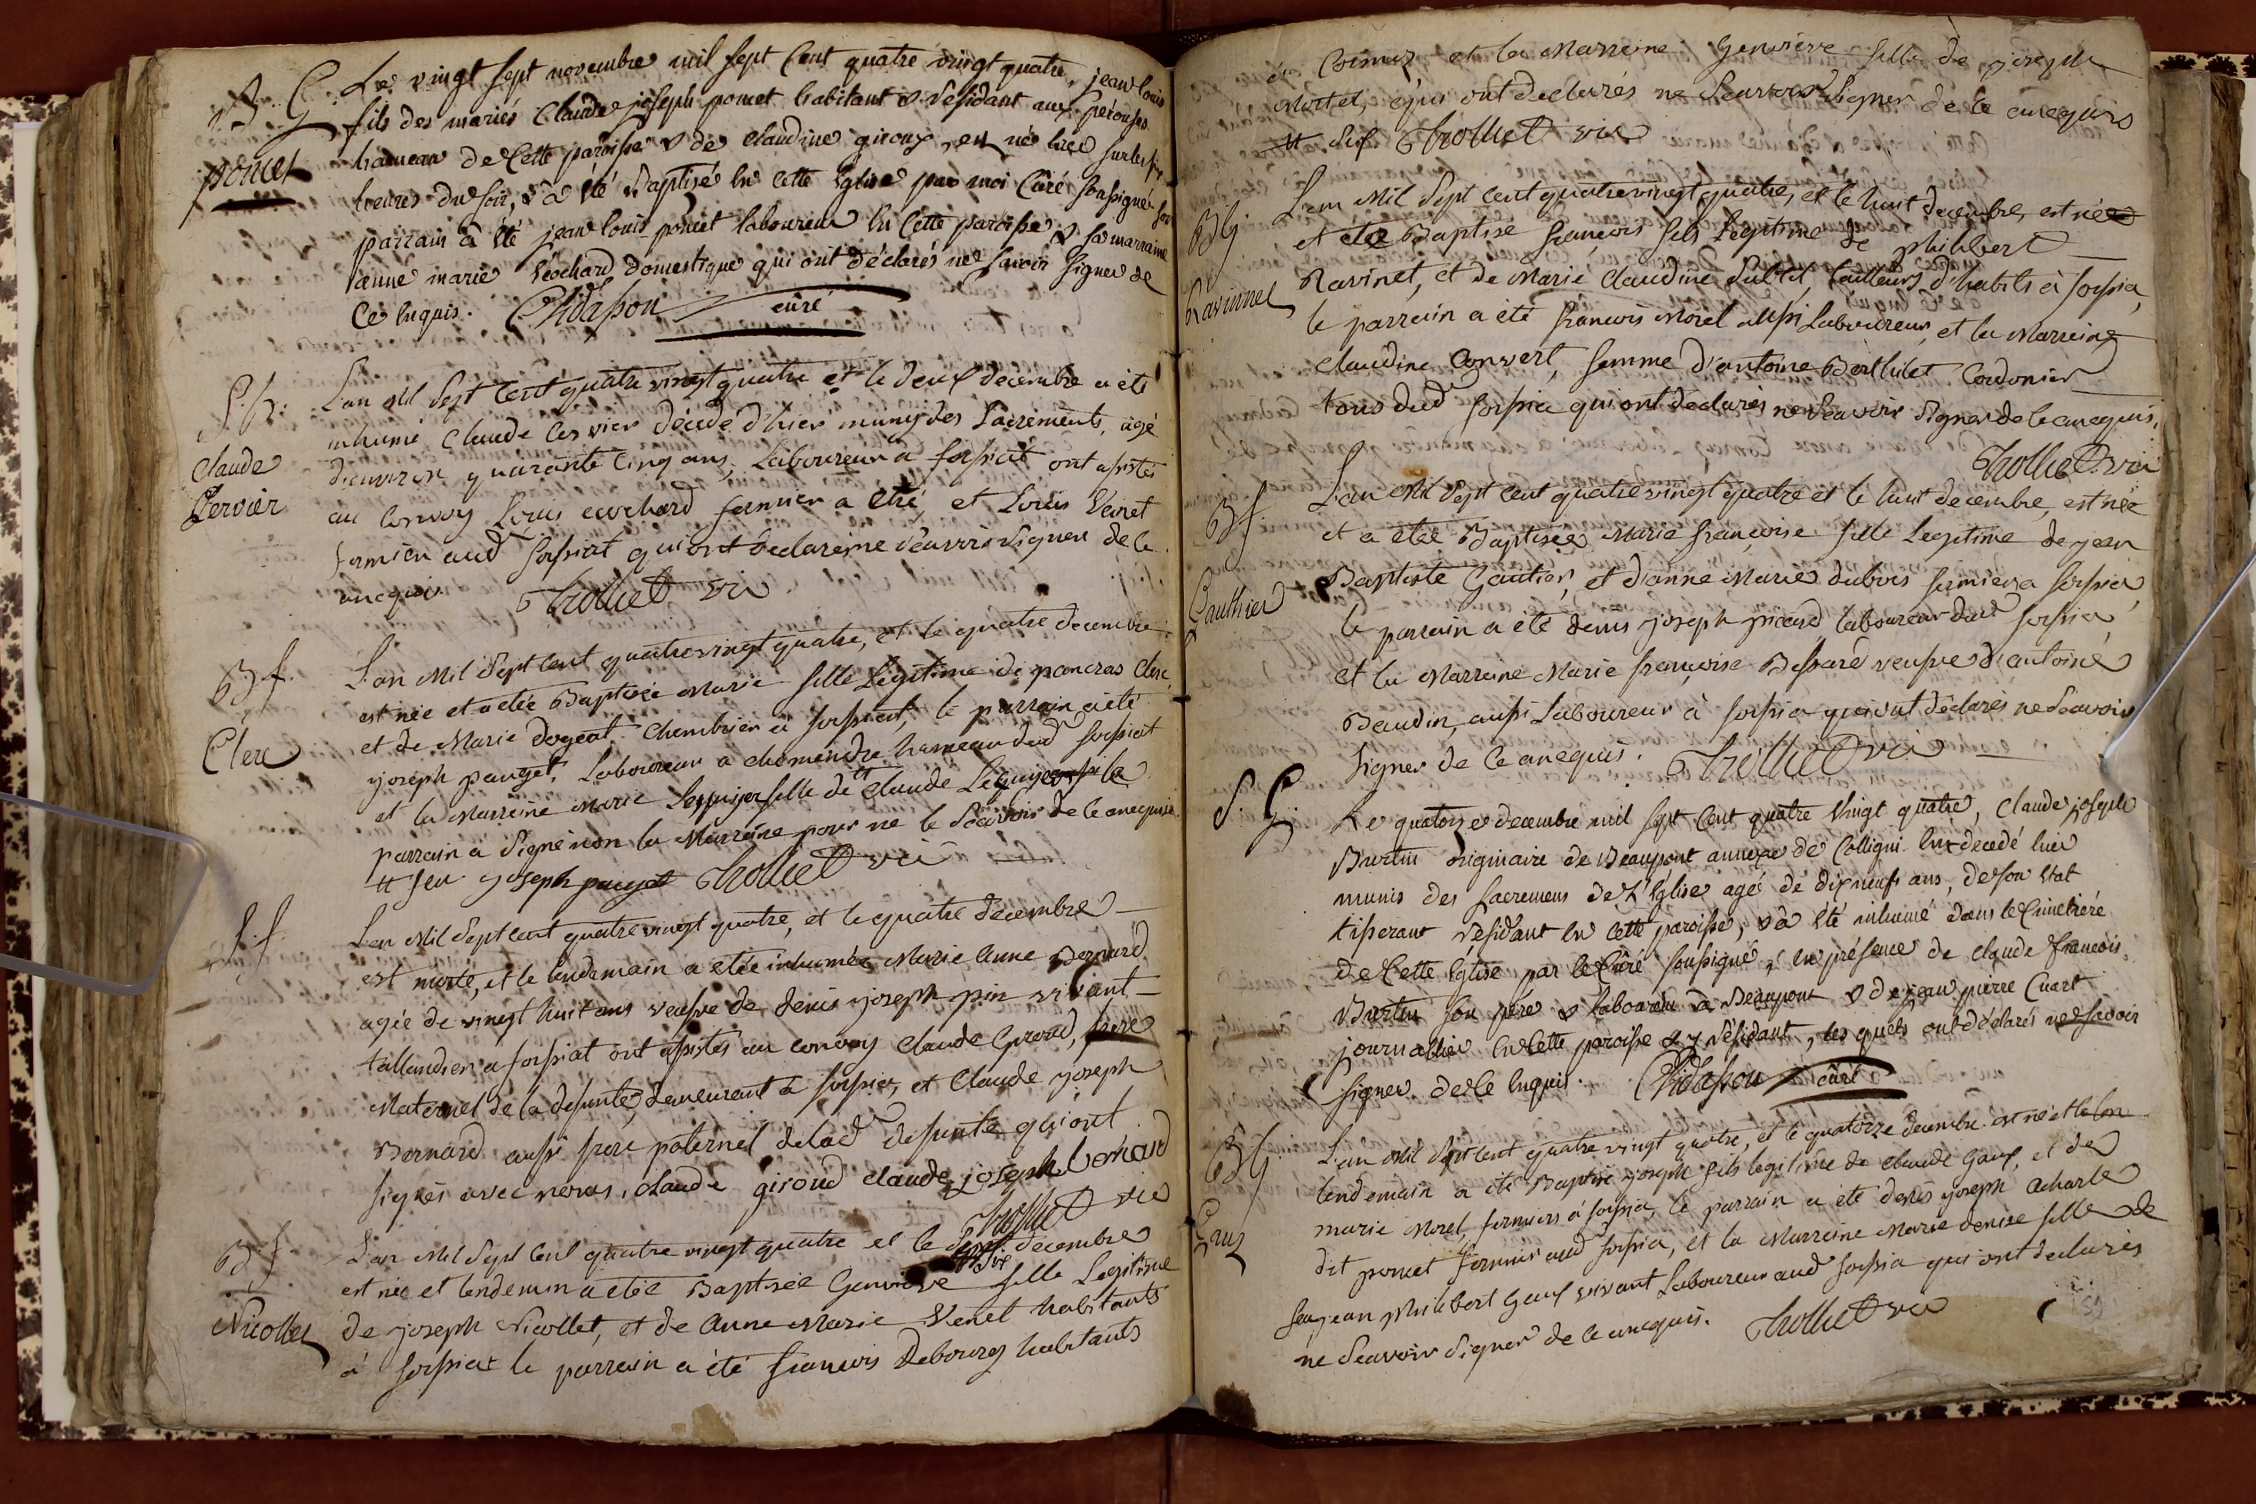 B. G.
poncet
Le vingt sept novembre mil sept Cent quatre vingt quatre, jean louis
fils des mariés Claude joseph poncet habitant & résidant aux pérouses
hameau de Cette paroisse & de claudine giroux, est né hier sur les six
heures du soir, & a été Baptisé en cette Eglise par moi Curé soussigné son
parrain a été jean louis poncet laboureur en Cette paroisse & sa marraine
anne marie cochard domestique qui ont déclarés ne savoir signer de
Ce enquis. Chidasson curé
S. G.
Claude
Cervier
L'an mil sept Cent quatre vingt quatre et le deux decembre a été
inhumé Claude Cervier décédé d'hier muny des Sacrements, agé
d'environ quarante cinq ans, Laboureur a forssiat ont assistés
au convoy Louis cochard fermier a été, et Louis Venet
fermier aud forssiat qui ont declarés ne sçavoir signer de ce
enequis. Thollet vic
B f.
Clerc
L'an Mil Sept Cent quatre vingt quatre, et le quatre decembre
est née et a étée Baptisée Marie fille Légitime de pancras Clerc
et de Marie dogeat Chambrier a forssiat, le parrain a été
joseph pauget, Laboureur a chomandre hameau dud forssiat
et la Marreine Marie Lequyer fille de tt Claude Lequyer
parrain a signé non la Marreine pour ne le sçavoir de ce anequis.
tt feu joseph pauget Thollet vic
S. f.
L'an Mil Sept Cent quatre vingt quatre, et le quatre decembre
est morte, et le lendemain a étée inhumée Marie Anne Bernard
agée de vingt huit ans veusve de denis joseph pin vivant
taillandier a forssiat ont assistés au convoy Claude Giroud, frere
Maternel de la defunte, demeurant a forssia, et Claude joseph
Bernard aussi frere paternel de lad defunte qui ont
signés avec nous. claude giroud claude joseph bernard
Thollet vic
B. f.
Nicollet
L'an Mil Sept Cent quatre vingt quatre et le sept decembre
est née et lendemin a étée Baptisée Geneviève fille Legitime
de joseph Nicollet, et de Anne Marie Venet habitants
à forssiat le parrain a été francois Debourg habitants
à Coimez et la Marreine Genevieve fille de joseph
Mortel, qui ont declarés ne Sçavoir Signer de ce enequis
Thollet vic
B G
Ravinnet
L'an Mil Sept Cent quatre vingt quatre, et le huit decembre, est né
et été Baptisé francois fils Legitime de philibert
Ravinet, et de Marie Claudine Sultil, tailleurs d'habits à forssia,
le parrain a été francois Morel aussi Laboureur, et la Marreine
Claudine Convert, femme d'antoine Berthilet Cordonier
tous dud forssia qui ont declarés ne Sçavoir Signer de ce anequis.
Thollet vic
B f
Gauthier
L'an Mil Sept Cent quatre vingt quatre et le huit decembre, est née
et a étée Baptisée Marie françoise fille Legitime de jean
Baptiste Gautier, et d'anne Marie dubois fermier a forssia,
le parrain a été denis joseph picard, laboureur dud forssia,
et la Marreine Marie françoise Bessard veusve d'antoine
Beaudin, aussi Laboureur à forssia qui ont déclarés ne Sçavoir
Signer de ce anequis. Thollet vic
S. G.
Le quatorze decembre mil sept Cent quatre Vingt quatre, Claude joseph
Burtin originaire de Beaupont annexe de Colligni est decedé hier
munis des sacremens de L'Eglise agé de dix neufs ans, de son Etat
tisserant résidant en Cette paroisse, & a été inhumé dans le Cimetière
de Cette Eglise par le Curé soussigné, en présence de claude francois
Burtin son père & laboureur a Beaupont & de jean pierre Cuart
journallier en Cette paroisse & y résidant, les quels ont déclarés ne savoir
signer de Ce enquis. Chidasson curé
B G
Graz
L'an Mil Sept Cent quatre vingt quatre, et le quatorze decembre est né et le len
lendemain a été Baptisé joseph fils legitime de claude Gaux, et de
marie Morel, fermiers à forssia, le parrain a été denis joseph Acharle
dit poncet fermier aud forssia, et la Marreine Marie denise fille de
feu jean Philibert Gaux vivant Laboureur aud forssia qui ont declarés
ne Sçavoir Signer de ce anequis. Thollet vic